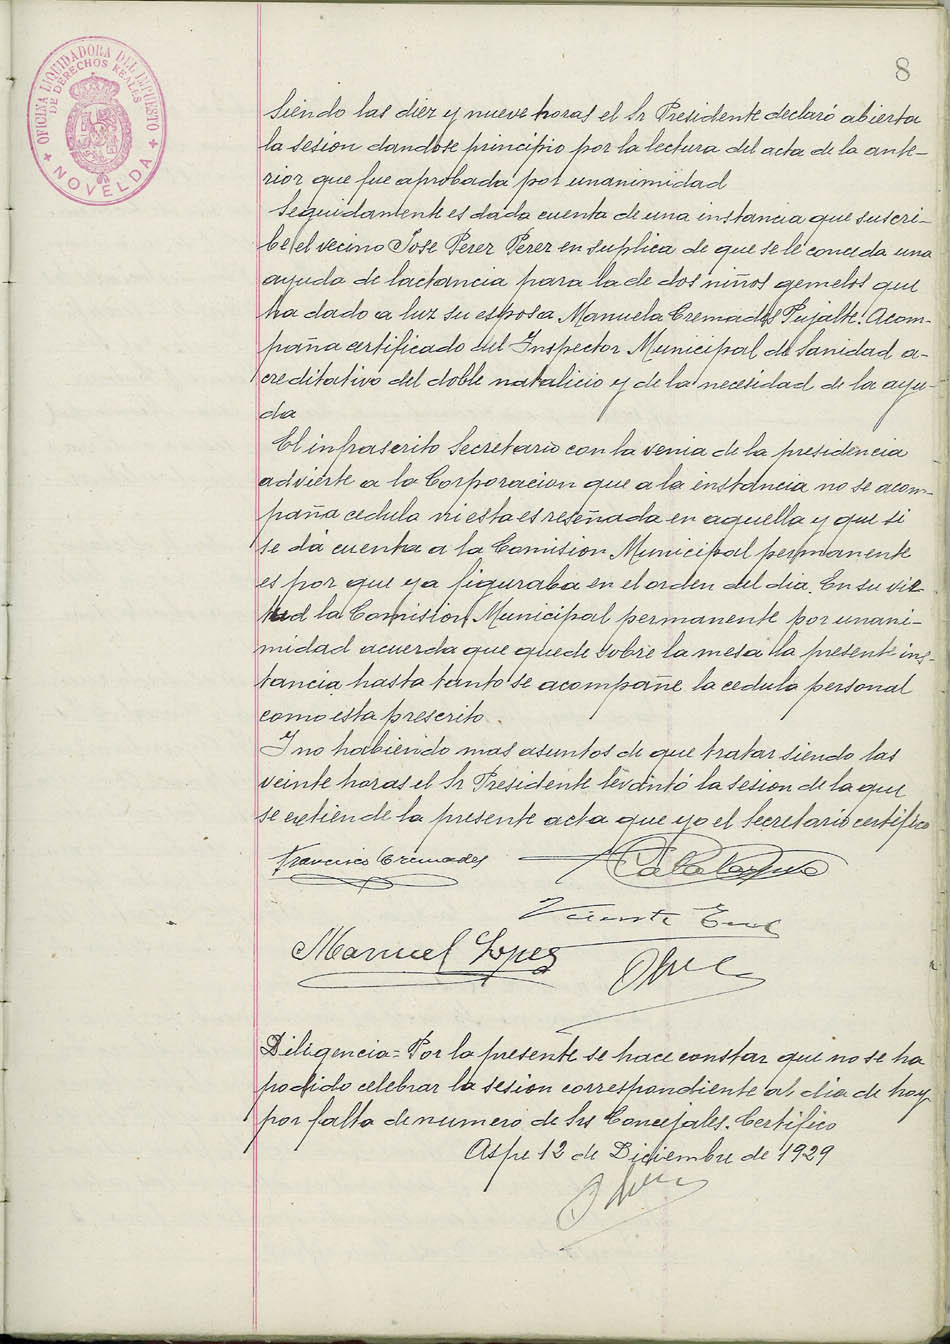 8
OFICINA LIQUIDADORA DEL IMPUESTO
DE DERECHOS REALES
+ NOVELDA +
Siendo las diez y nueve horas el Sr Presidente declaró abierta
la sesion dandose principio por la lectura del acta de la ante-
rior que fue aprobada por unanimidad
Seguidamente es dada cuenta de una instancia que suscri-
be el vecino Jose Perez Perez en suplica de que se le conceda una
ayuda de lactancia para la de dos niños gemelos que
ha dado a luz su esposa Manuela Cremades Pujalte. Acom-
paña certificado del Inspector Municipal de Sanidad a-
creditativo del doble natalicio y de la necesidad de la ayu-
da
El infrascrito Secretario con la venia de la presidencia
advierte a la Corporacion que a la instancia no se acom-
paña cedula ni esta es reseñada en aquella y que si
se dá cuenta a la Comision Municipal permanente
es por que ya figuraba en el orden del dia. En su vir-
tud la Comision Municipal permanente por unani-
midad acuerda que quede sobre la mesa la presente ins-
tancia hasta tanto se acompañe la cedula personal
como esta prescrito
I no habiendo mas asuntos de que tratar siendo las
veinte horas el Sr Presidente levantó la sesion de la que
se extiende la presente acta que yo el Secretario certifico
Francisco Cremades
Vicente
Manuel Lopez
Diligencia = Por la presente se hace constar que no se ha
podido celebrar la sesion correspondiente al dia de hoy
por falta de numero de Srs Concejales. Certifico
Aspe 12 de Diciembre de 1929